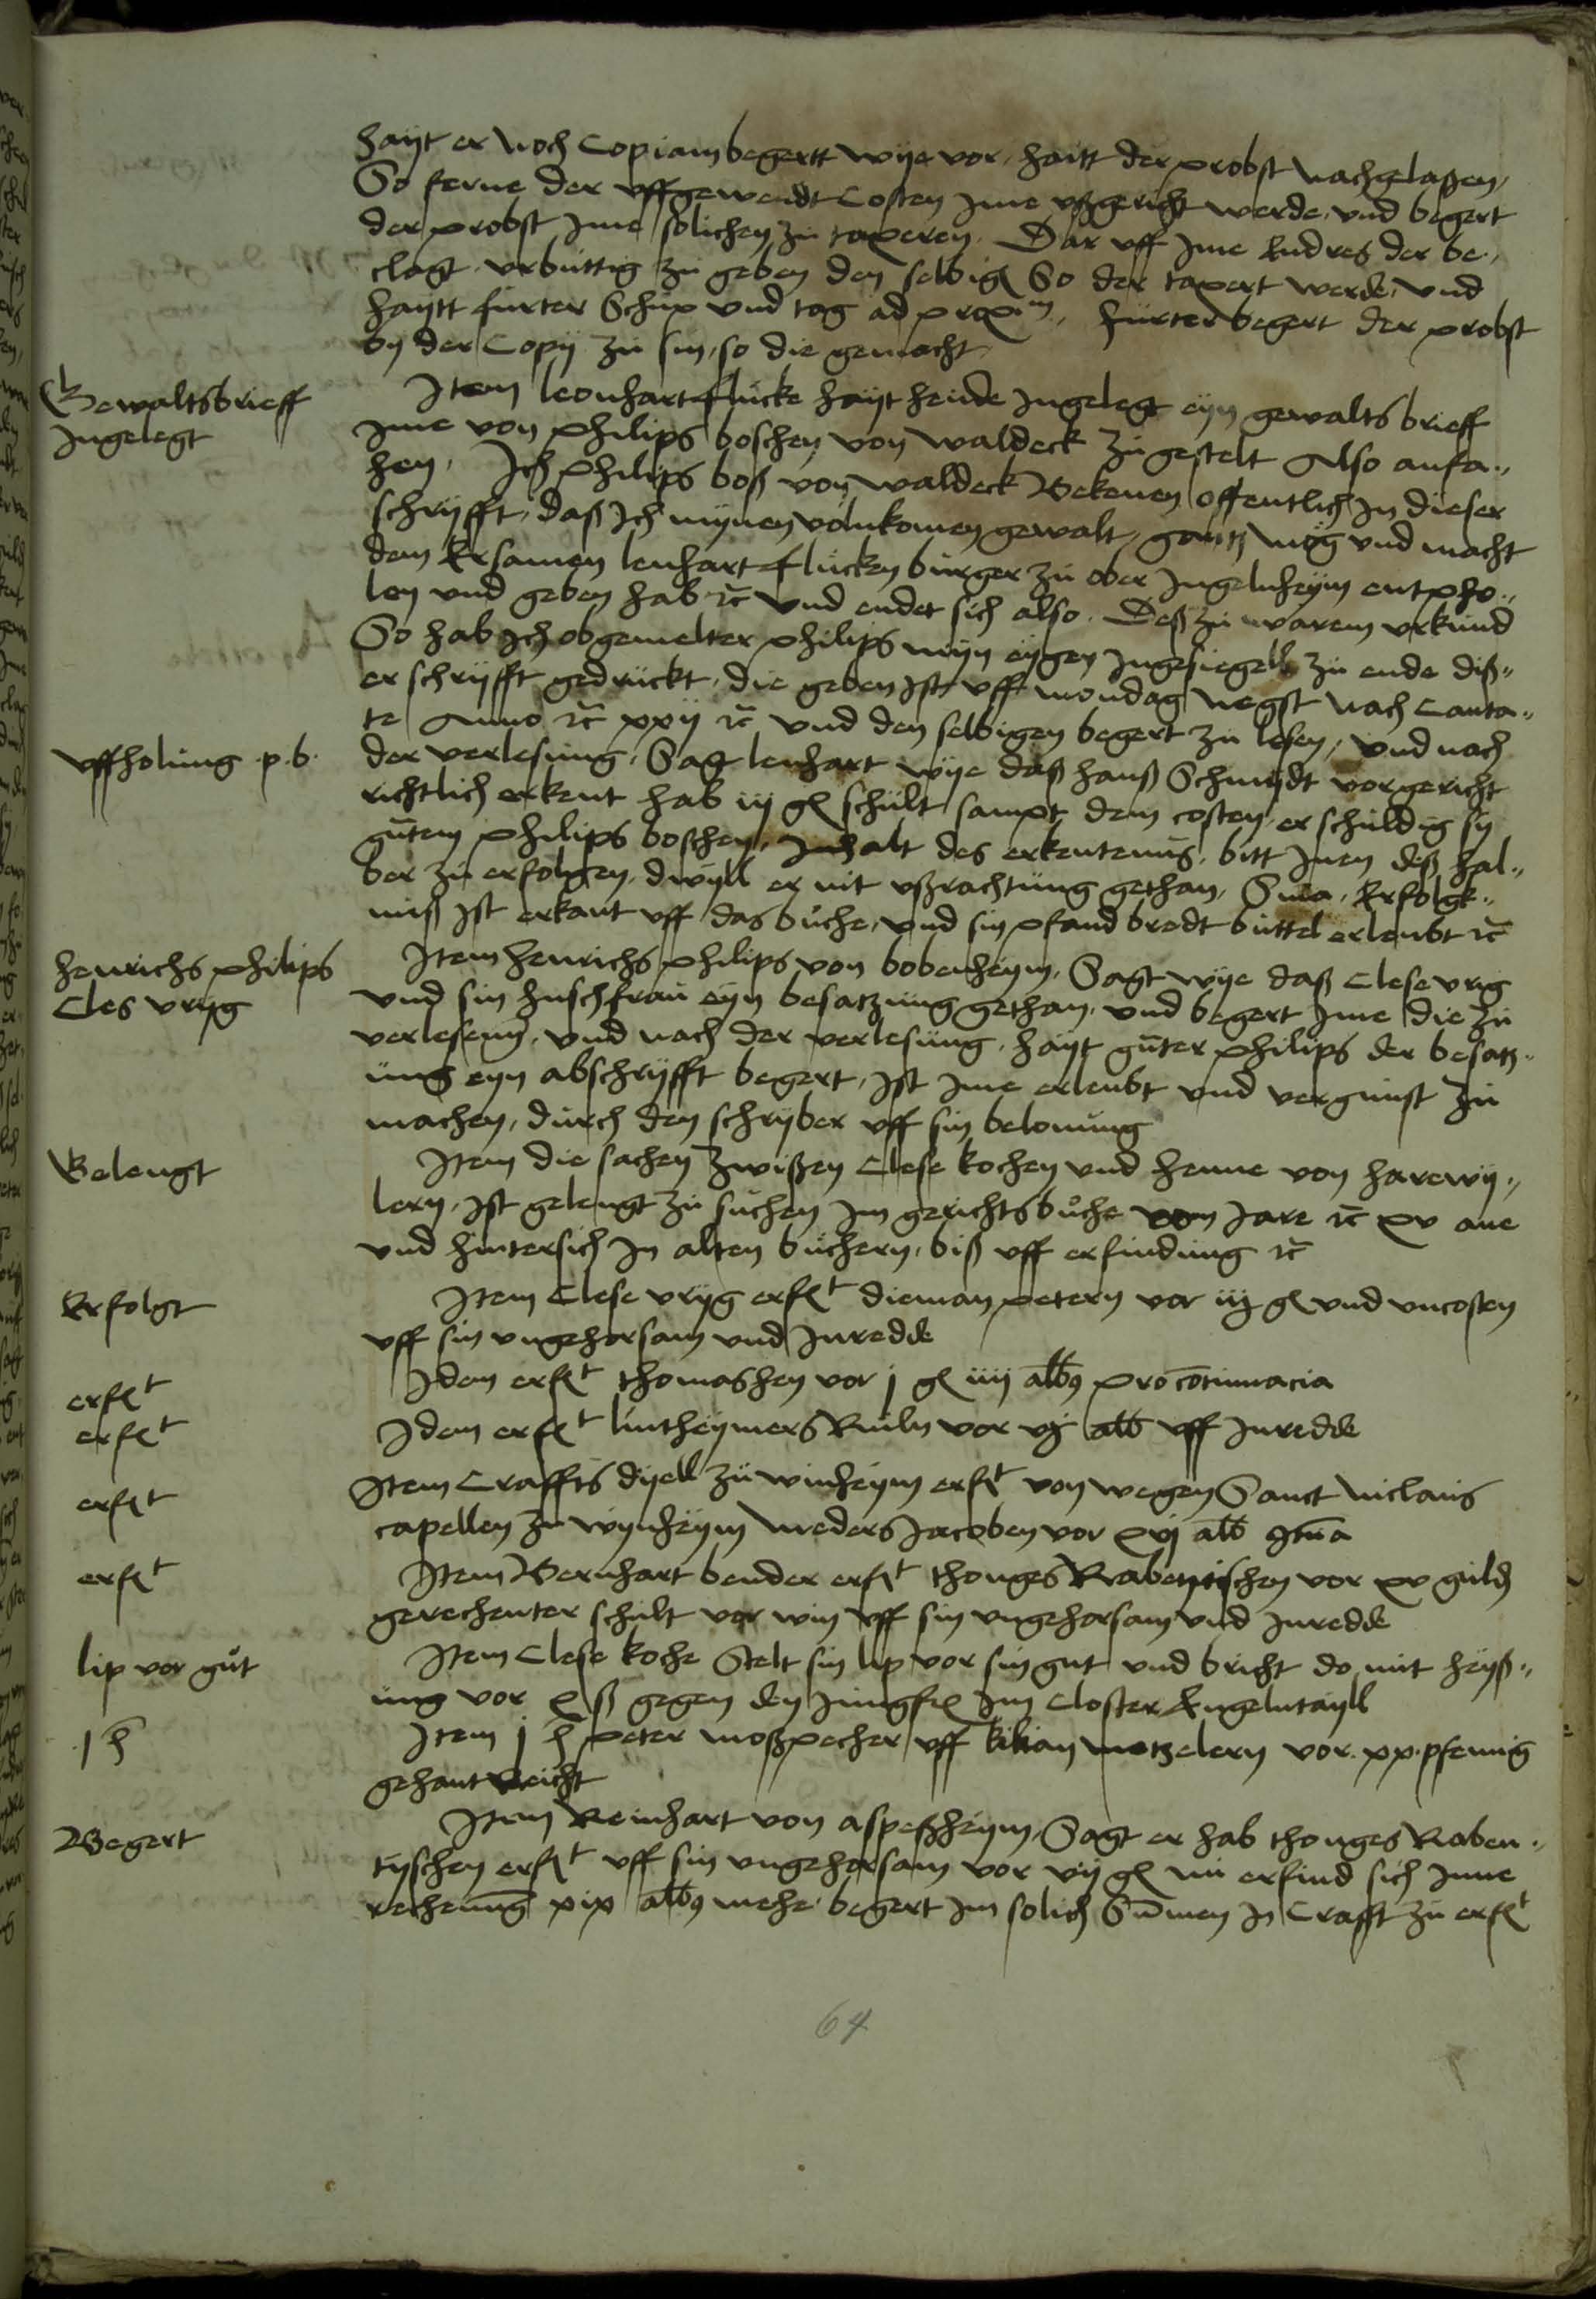 hayt er noch Copiam begertt wye vor, haitt der probst nachgelaßen,
So ferne der uffgewendt Costen Ime ußgericht werde, und begert
der probst Ime solichen zu taxeren. Dar uff Ime Endres der be„
clagt urbuttig zu geben den selbigen So der taxert werde, und
haytt furter Schup und tag ad prox̄im̄, furter begert der probst
by der Copij zu sin, so die gemacht
Gewaltsbrieff
Ingelegt
Item leonhart flucke hayt heude Ingelegt eyn gewalts brieff
Ime von philips boschen von waldeck zugestelt Also anfa„
hen, Ich philips boß von waldeck Bekenen offentlich In dieser
schryfft, daß Ich mynen volnkomen gewalt, gantz mog und macht
dem Ersamen lenhart flucken burger zu ober Ingelnheym entpho„
len und geben hab ꝛc̄ und endet sich also. Deß zu warem urkund
So hab Ich obgemelter philips myn eygen Ingesiegell zu ende diß„
er schryfft gedruckt, die geben Ist uff mondag negst nach Canta„
te Anno ꝛc̄ xxij ꝛc̄ und den selbigen begert zu lesen, und nach
uffholung p. b.
der verlesung, Sagt lenhart wye daß hanß Schmydt vorgericht
richtlich erkent hab iij gl schult sampt dem costen er schuldig sy
gutem philips boschen, Inhalt des erkentenus, bitt Inen deß hal„
ber zu erfolgen, dwyll er nit ußrachtung gethan, Sma, Erfolgk„
niß Ist erkant uff das buche, und sin pfand bredt buttel erleubt ꝛc̄
henrichs philips
Cles uryg
Item henrichs philips von bobenheym, Sagt wye daß Clese uryg
und sin huschfrau eyn besatzung gethan, und begert Ime die zu
verlesenn, und nach der verlesung, hayt guter philips der besatz„
ung eyn abschryfft begert, Ist Ime erleubt und vergunst zu
machen, durch den schryber uff sin belonung
Gelengt
Item die sachen zwißen Clese kochen und henne von harewy„
lern, Ist gelengt zu suchen Im gerichtsbuche vom Jare ꝛc̄ xv ane
und hintersich In alten buchern, biß uff erfindung ꝛc̄
Erfolgt
Item Clese uryg erfl^t dieman petern vor iij gl und uncosten
uff sin ungehorsam und Inredde
erfl^t
Idem erfl^t thomashen vor j gl iiij albus pro cōtumacia
erfl^t
Idem erfl^t lintheymers Ruln vor vj alb uff Inredde
erfl^t
Item Craffts dyell zu winheym erfl^t von wegen Sanct niclaus
capellen zu wynheym meders Jacoben vor xvj alb
erfl^t
Item Bernhart bender erfl^t thonges Rabentischen vor xv guld
gerechenter schult vor win uff sin ungehorsam und Inredde
lip vor gut
Item Clese koche Stelt sin lip vor sin gut und bricht do mit heyß„
ung vor x ß gegen den Jungfr Im Closter Engelntayll
1 h
Item j h peter moßpecher uff kilian metzelern vor. xx. pfennig
gehantreicht
Begert
Item Reinhart von aspeßheym, Sagt er hab thonges Raben„
tyschen erfl^t uff sin ungehorsam vor vij gl nu erfind sich Inne
rechenung xix albus mehe begert Im solich Sumen In Crafft zu erfl^t
64